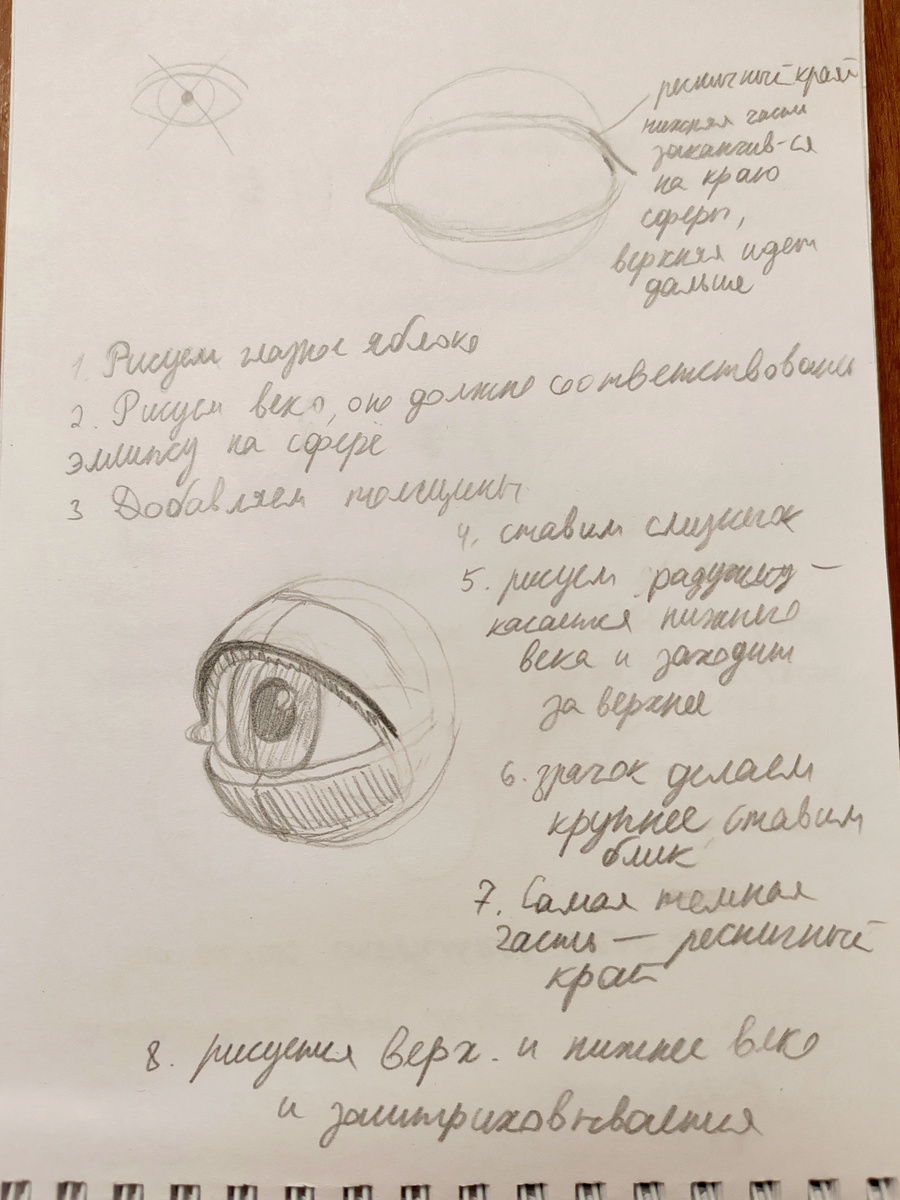 ресничный край
нижняя часть
заканчив-ся
на краю
сферы,
верхняя идет
дальше
1. Рисуем глазное яблоко
2. Рисуем веко, оно должно соответствовать
эллипсу на сфере
3 Добавляем толщины
4. ставим слизнегок
5. рисуем радужку –
касается нижнего
века и заходит
за верхнее
6. зрачок делаем
крупнее, ставим
блик
7. Самая темная
часть — ресничный
край
8. рисуется верх. и нижнее веко
и заштриховывается